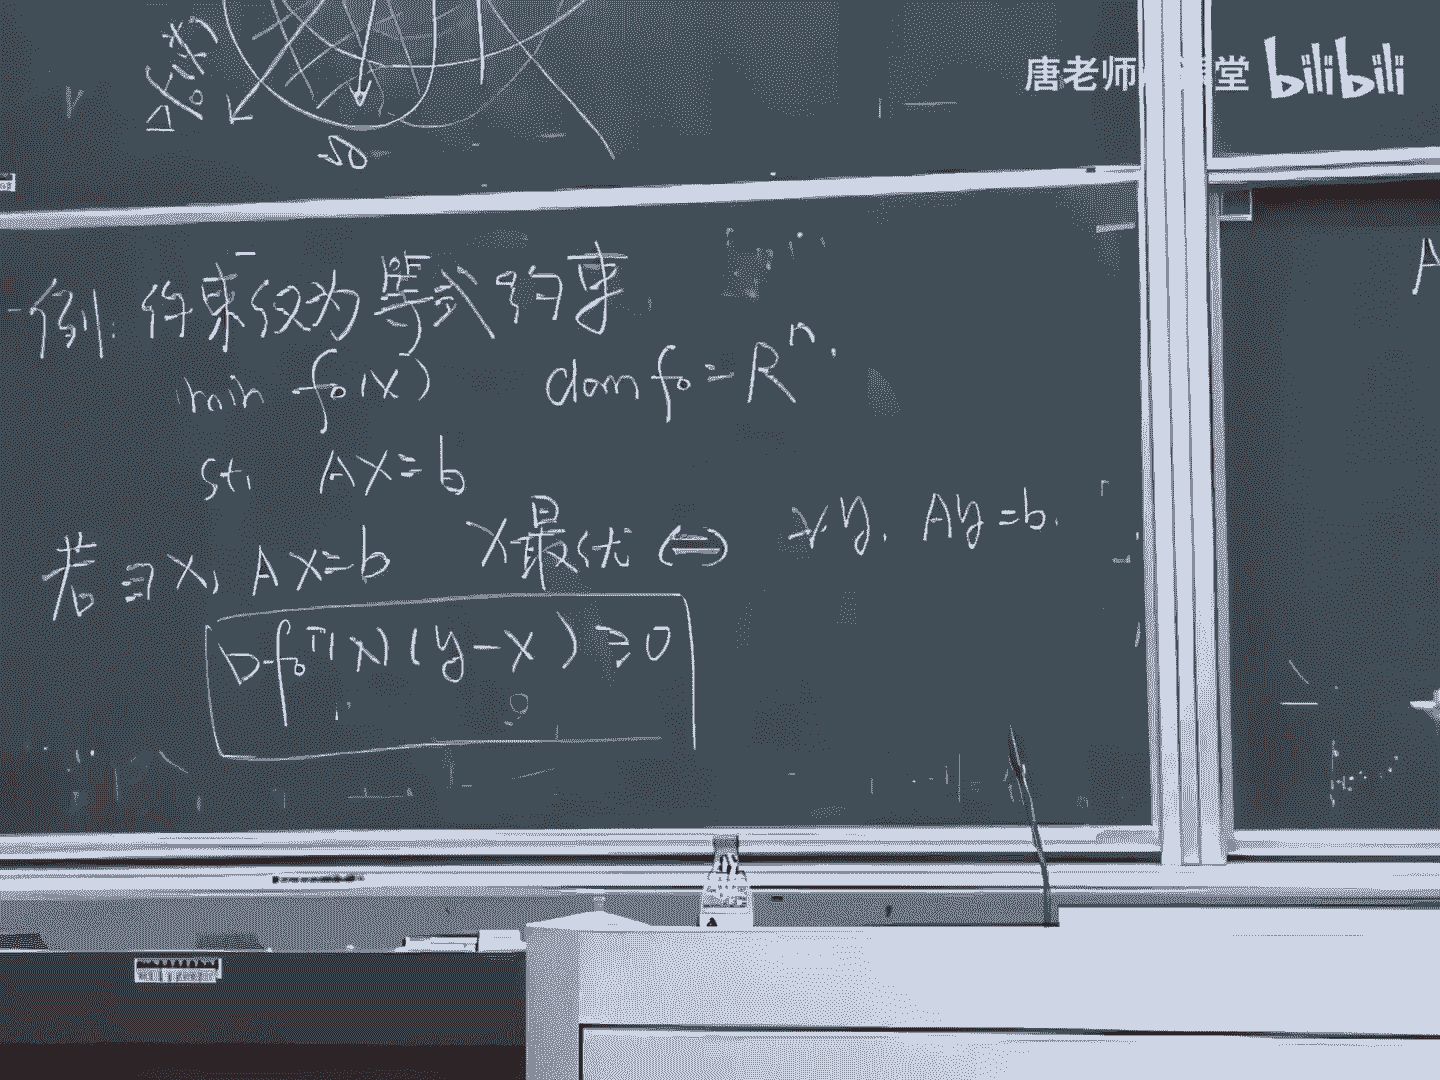 ∇f₀(x)
唐老师 堂 bilibili
例: 约束仅为等式约束
min f₀(x) dom f₀ = Rⁿ.
st. Ax=b
若∃x, Ax=b x最优 ⟺ ∀y, Ay=b.
∇f₀ᵀ(x)(y-x) ≥ 0
A